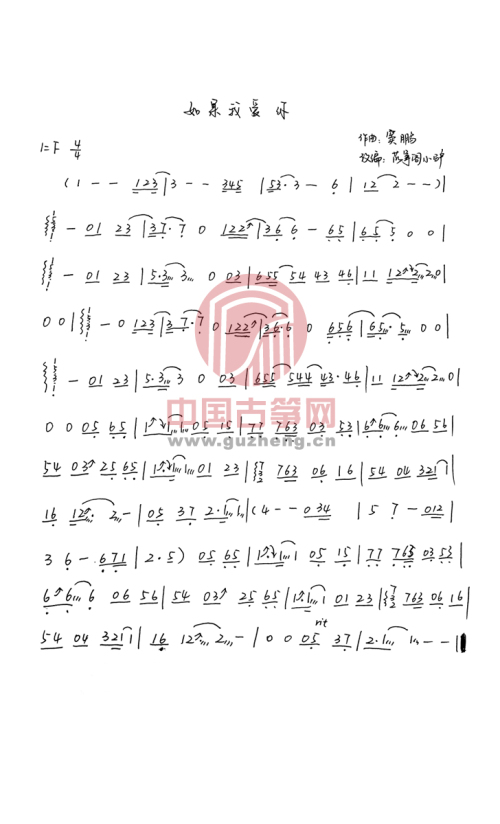 如果我爱你
1=F 4/4
作曲: 窦鹏
改编:
(1 - - 123 | 3 - - 345 | 53·3 - 6 | 12 2 - -) |
- 01 23 | 37·7 0 122 | 36 6 - 65 | 65 5 0 0 |
- 01 23 | 5·3 3 0 03 | 655 54 43 46 | 11 12 2 2 0 |
0 0 | - 0 123 | 3 7·7 0 122 | 36·6 0 656 | 65 5 0 0 |
- 01 23 | 5·3 3 0 03 | 655 544 43·46 | 11 12 2 2 0 |
0 0 05 65 | 1 1 05 15 | 77 763 03 53 | 6 6 6 06 56 |
54 03 25 65 | 1 1 1 01 23 | 763 06 16 | 54 04 321 1 |
16 12 · 2 - | 05 37 2·1 1 | (4 - - 034 | 5 7 - 012 |
3 6 - 671 | 2·5) 05 65 | 1 1 1 05 15 | 77 763 03 53 |
6 6 6 06 56 | 54 03 25 65 | 1·1 1 01 23 | 763 06 16 |
rit
54 04 321 1 | 16 12 2 - | 0 0 05 37 | 2·1 1 - - ‖
中国古筝网
www.guzheng.cn